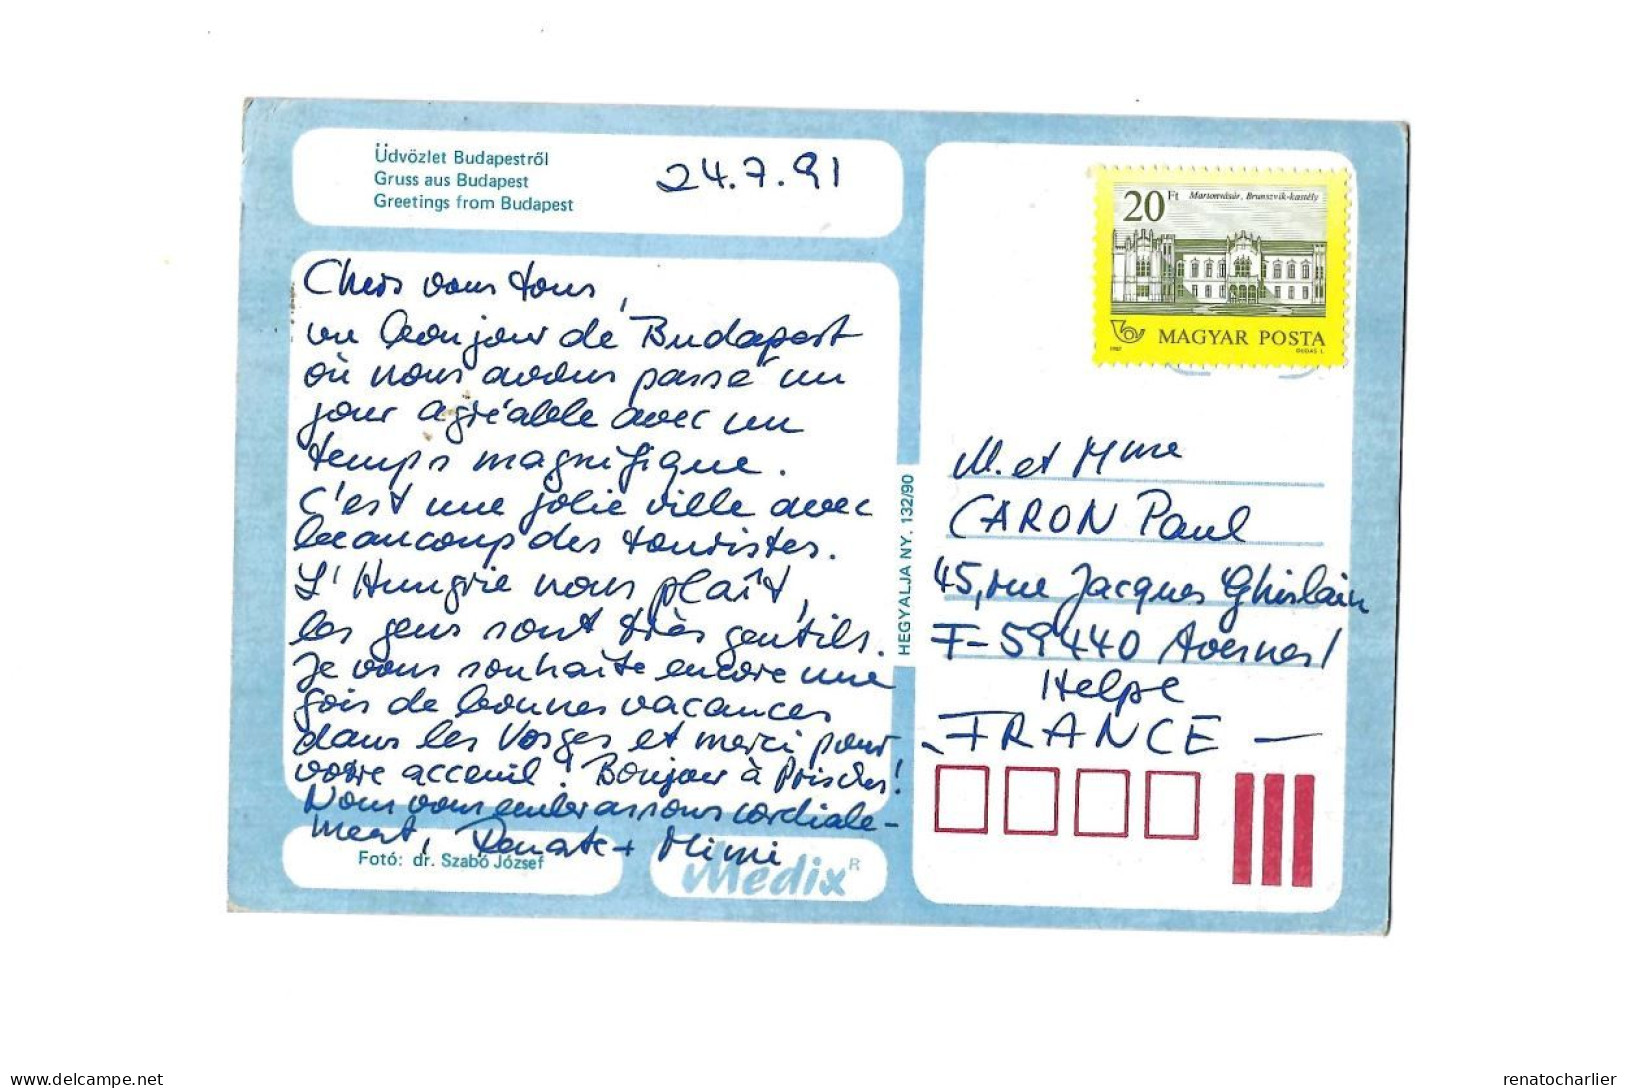 Üdvözlet Budapestről
Gruss aus Budapest
Greetings from Budapest
24.7.91
Chers vous tous,
un bonjour de Budapest
où nous avons passé un
jour agréable avec un
temps magnifique.
C'est une jolie ville avec
beaucoup des touristes.
L'Hungrie nous plaît,
les gens sont très gentils.
Je vous souhaite encore une
fois de bonnes vacances
dans les Vosges et merci pour
votre acceuil! Bonjour à Prisches!
Nous vous embrassons cordiale-
ment, Renate + Mimi
Fotó: dr. Szabó József
Medix R
HEGYALJA NY. 132/90
20 Ft Martonvásár, Brunszvik-kastély
MAGYAR POSTA
1987 DUDÁS L.
M. et Mme
CARON Paul
45, rue Jacques Ghislain
F-59440 Avesnes/
Helpe
FRANCE —
renatocharlier
delcampe.net